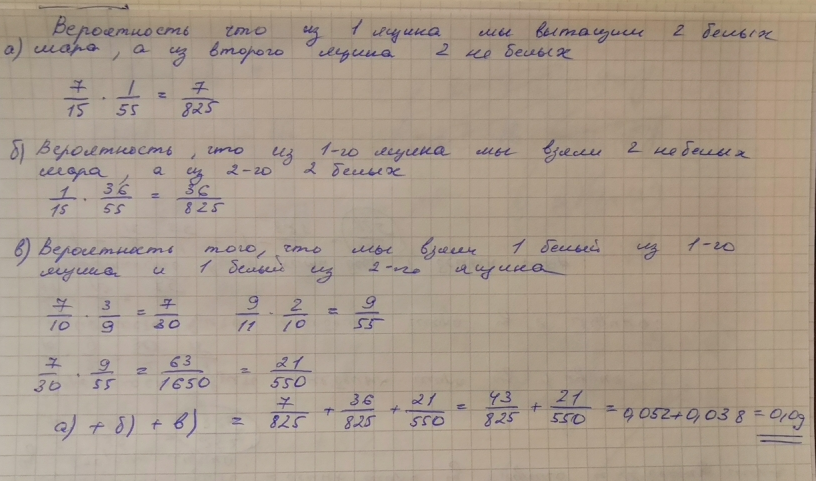 Вероятность что из 1 ящика мы вытащим 2 белых
а) шара, а из второго ящика 2 не белых
7/15 · 1/55 = 7/825
б) Вероятность, что из 1-го ящика мы взяли 2 небелых
шара, а из 2-го 2 белых
1/15 · 36/55 = 36/825
в) Вероятность того, что мы взяли 1 белый из 1-го
ящика и 1 белый из 2-го ящика
7/10 · 3/9 = 7/30 9/11 · 2/10 = 9/55
7/30 · 9/55 = 63/1650 = 21/550
а) + б) + в) = 7/825 + 36/825 + 21/550 = 43/825 + 21/550 = 0,052+0,038 = 0,09